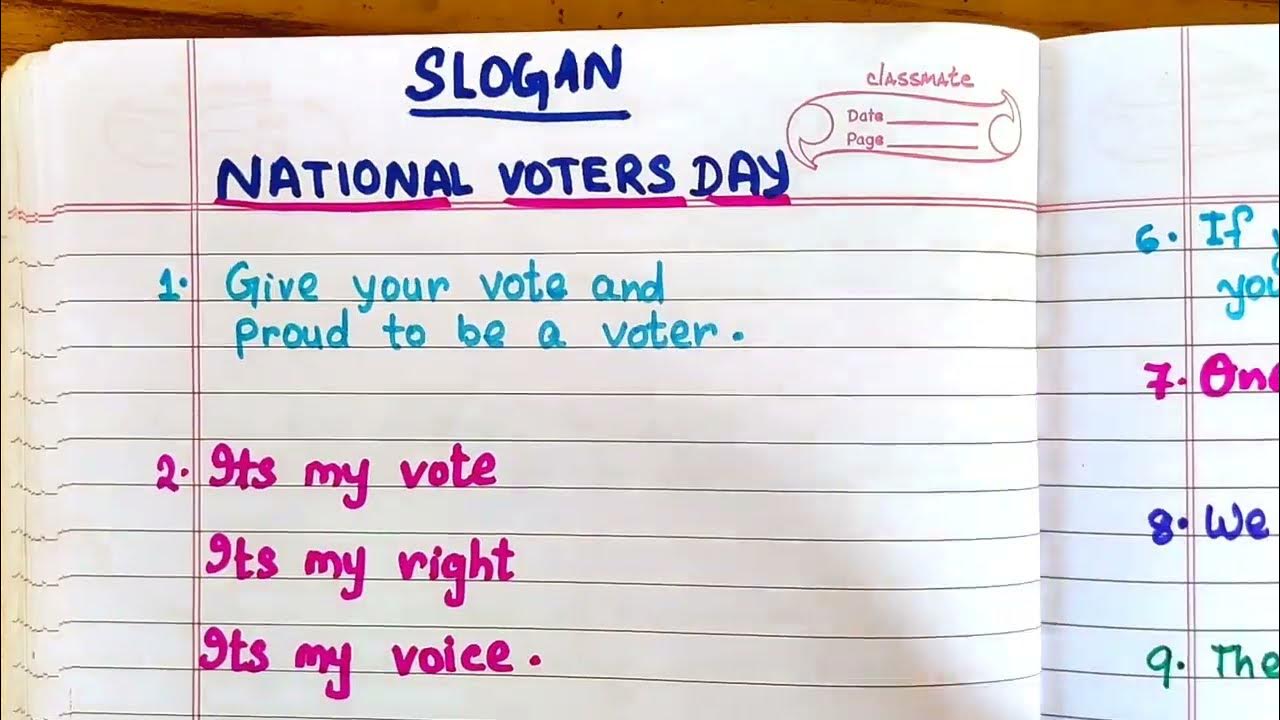 SLOGAN
classmate
Date
Page
NATIONAL VOTERS DAY
1. Give your vote and
proud to be a voter.
2. Its my vote
Its my right
Its my voice.
6. If
7.
8. We
9. The